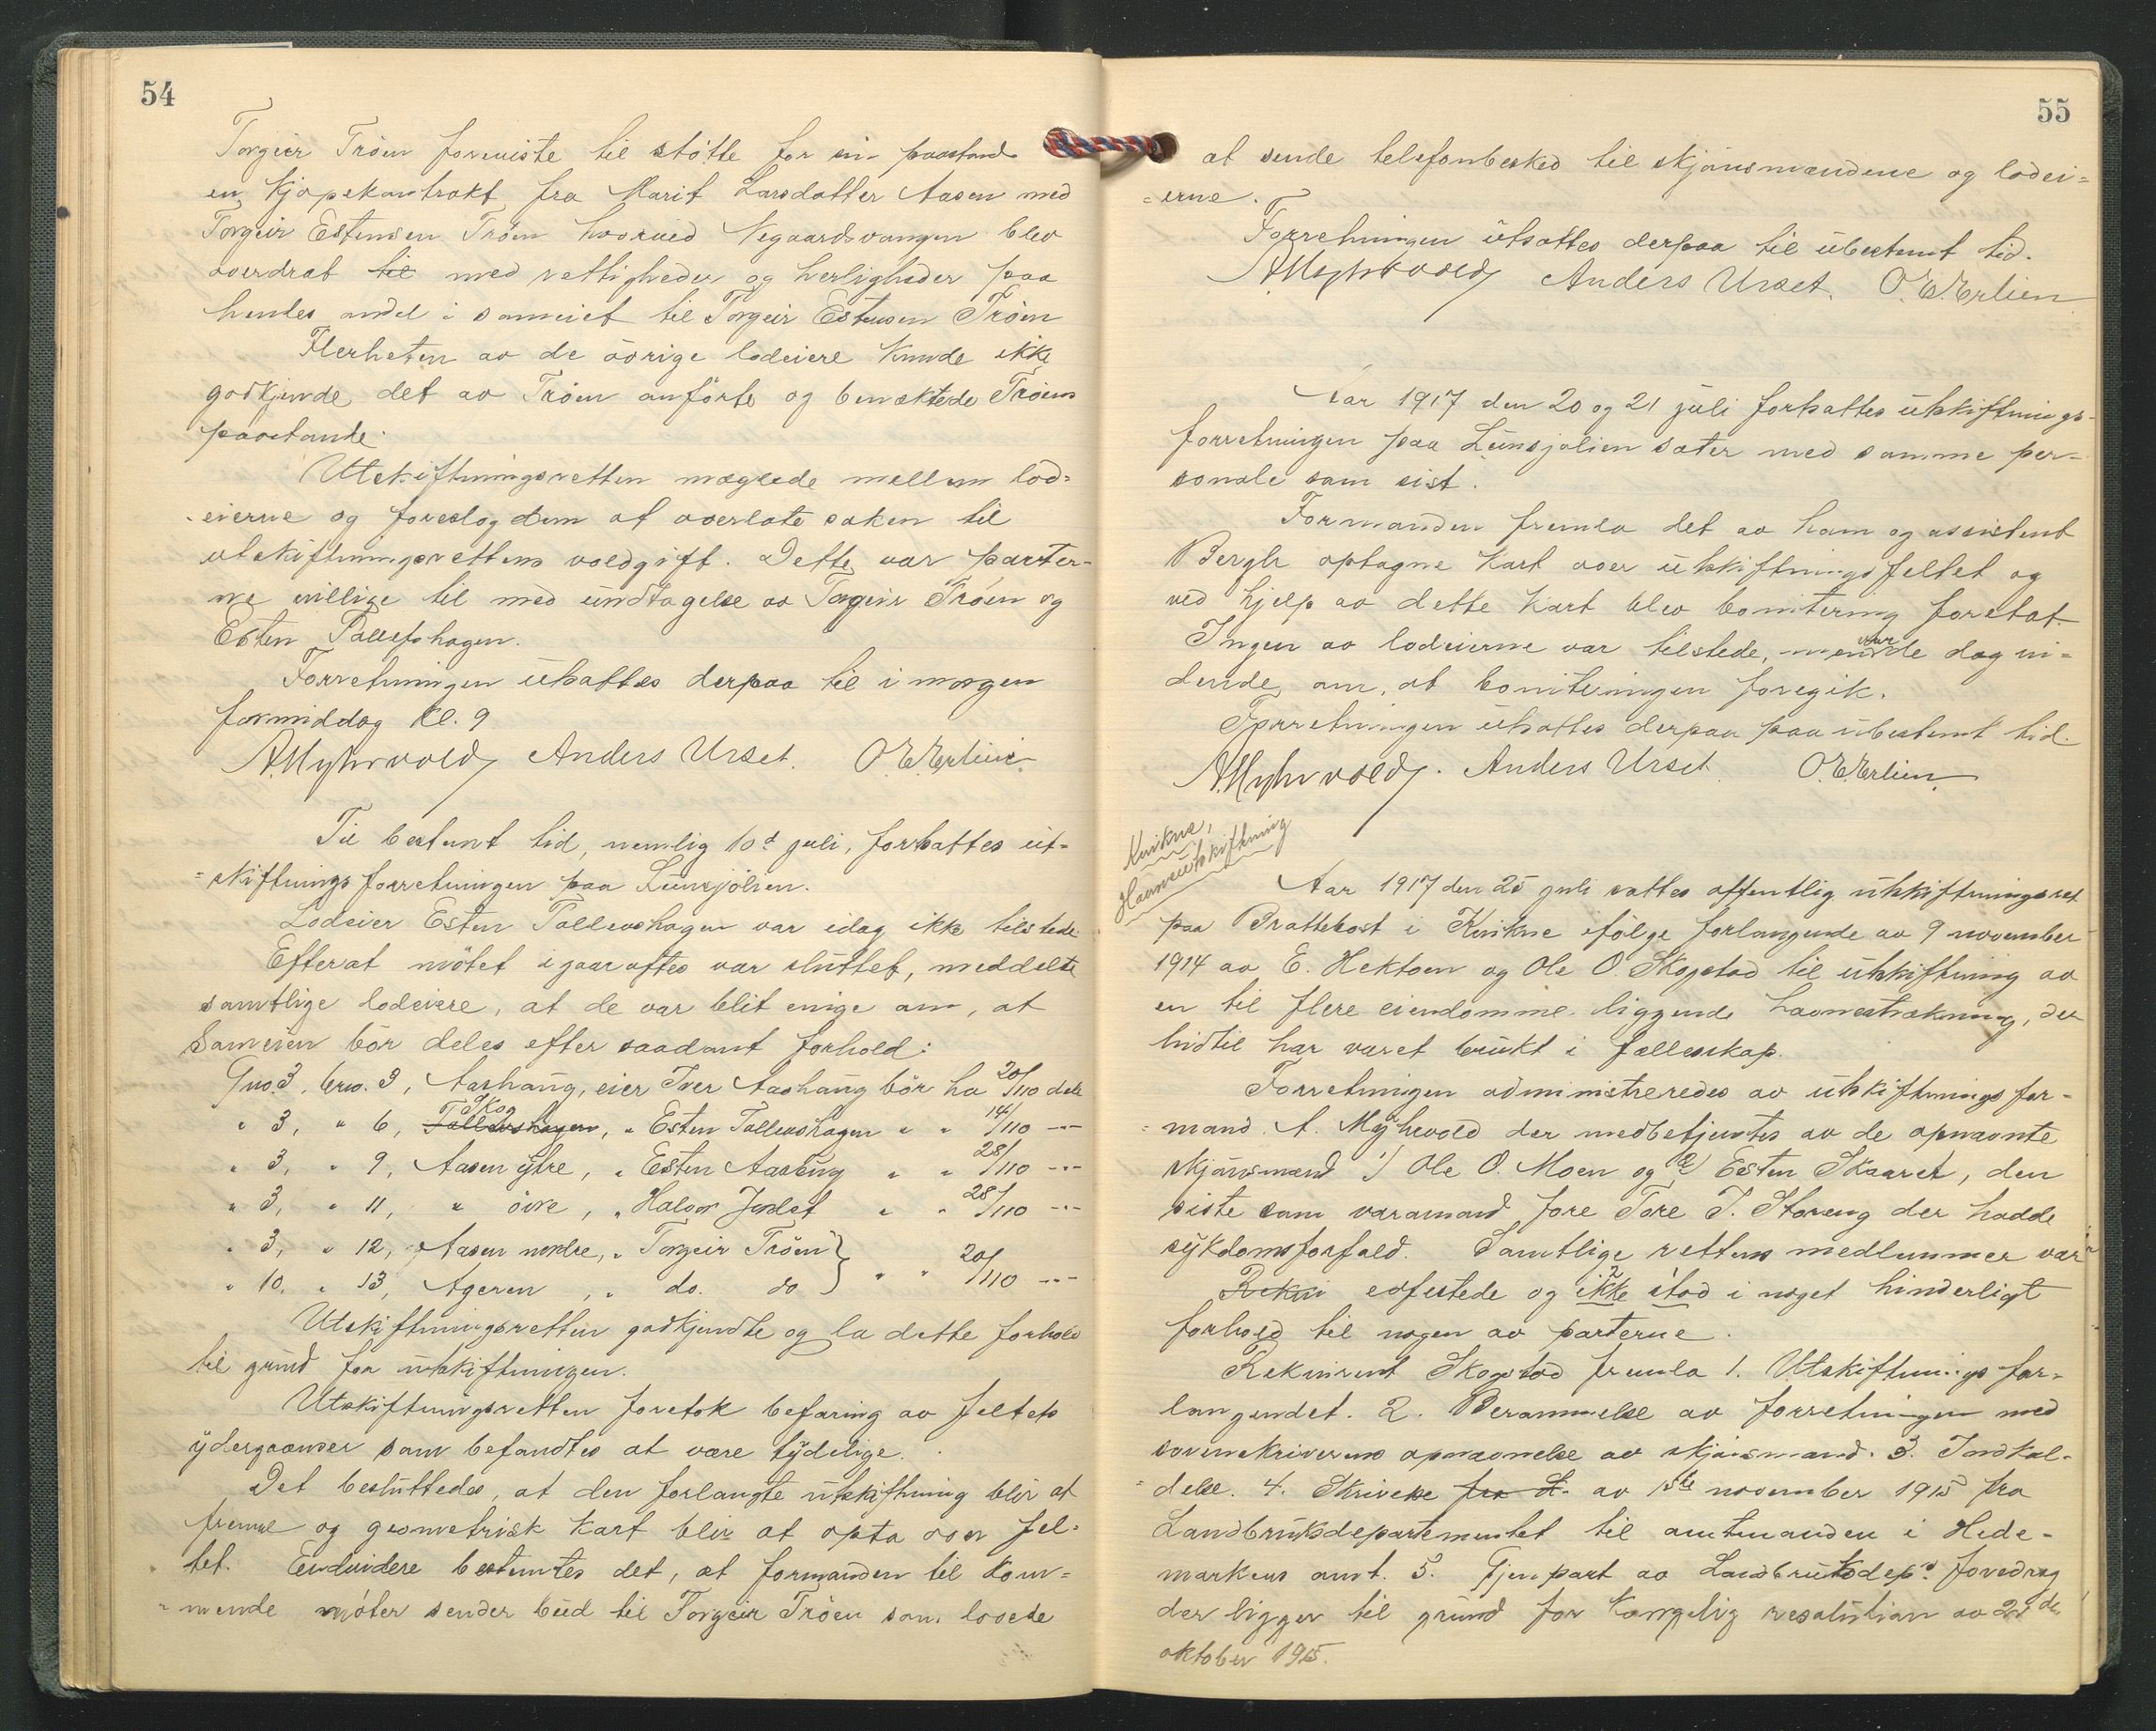 54
Torgeir Trøen foreviste til støtte for sin paastand
en kjøpekontrakt fra Marit Larsdatter Aasen med
Torgeir Estensen Trøen hvorved Vegaardsvangen blev
overdrat til med rettigheder og herligheder paa
hendes andel i sameiet til Torgeir Estensen Trøen
Flerheten av de øvrige lodeiere kunde ikke
godkjende det av Trøen anførte og benæktede Trøens
paastande.
Utskiftningsretten mæglede mellem lod-
eierne og foreslog dem at overlate saken til
utskiftningsrettens voldgift. Dette var parter-
ne villige til med undtagelse av Torgeir Trøen og
Esten Tallefshagen.
Forretningen utsattes derpaa til i morgen
formiddag kl. 9
A. Myhrvold Anders Urset. O. E. Erlien
Til bestemt tid, nemlig 10d juli, fortsattes ut-
skiftningsforretningen paa Lunsjølien.
Lodeier Esten Tallevshagen var idag ikke tilstede.
Efterat møtet igaar aftes var sluttet, meddelte
samtlige lodeiere, at de var blit enige om, at
Sameien bør deles efter saadant forhold:
Gno. 3, brn. 3, Aashaug, eier Iver Aashaug bør ha 20/110 dele
" 3, " 6, Tallevshagen Skog, " Esten Tallevshagen " " 14/110 ---
" 3, " 9, Aasen ytre, " Esten Aasbug " " 28/110 ---
" 3, " 11, " øvre, " Halvor Jordet " " 28/110 ---
" 3, " 12, Aasen nordre, " Torgeir Trøen
" 10, " 13, Ageren, " do. do } " " 20/110 ---
Utskiftningsretten godkjendte og la dette forhold
til grund for utskiftningen.
Utskiftningsretten foretok befaring av feltets
ydergrænser som befandtes at være tydelige.
Det besluttedes, at den forlangte utskiftning blir at
fremme og geometrisk kart blir at opta over fel-
tet. Endvidere bestemtes det, at formanden til kom-
mende møter sender bud til Torgeir Trøen som lovede
55
at sende telefonbesked til skjønsmændene og lodei-
erne.
Forretningen utsattes derpaa til ubestemt tid.
A. Myhrvold Anders Urset. O. E. Erlien
Aar 1917 den 20 og 21 juli fortsattes utskiftnings-
forretningen paa Lunsjølien sæter med samme per-
sonale som sist.
Formanden fremla det av ham og assistent
Bergh optagne kart over utskiftningsfeltet og
ved hjelp av dette kart blev bonitering foretat.
Ingen av lodeierne var tilstede, men var de dog vi-
dende om, at boniteringen foregik.
Forretningen utsattes derpaa paa ubestemt tid.
A. Myhrvold. Anders Urset O. E. Erlien
Kvikne,
Havneutskiftning
Aar 1917 den 25 juli sattes offentlig utskiftningsret
paa Brattebost i Kvikne ifølge forlangende av 9 november
1914 av E. Hektoen og Ole O. Skogstad til utskiftning av
en til flere eiendomme liggende havnestrækning, der
hidtil har været brukt i fællesskap.
Forretningen administreredes av utskiftningsfor-
mand A. Myhrvold der medbetjentes av de opnævnte
skjønsmænd 1) Ole O. Moen og 2) Esten Skaaret, den
siste som varamand fore Tore J. Storeng der hadde
sykdomsforfald. Samtlige rettens medlemmer var
Rekvi edfestede og ikke stod i noget hinderligt
forhold til nogen av parterne.
Rekvirent Skogstad fremla 1. Utskiftningsfor-
langendet. 2. Berammelse av forretningen med
sorenskriverens opnævnelse av skjønsmænd. 3. Indkal-
delse. 4. Skrivelse fra L. av 1ste november 1915 fra
Landbruksdepartementet til amtmanden i Hede-
markens amt. 5. Gjenpart av Landbruksdep.s foredrag
der ligger til grund for kongelig resolution av 22de
oktober 1915.